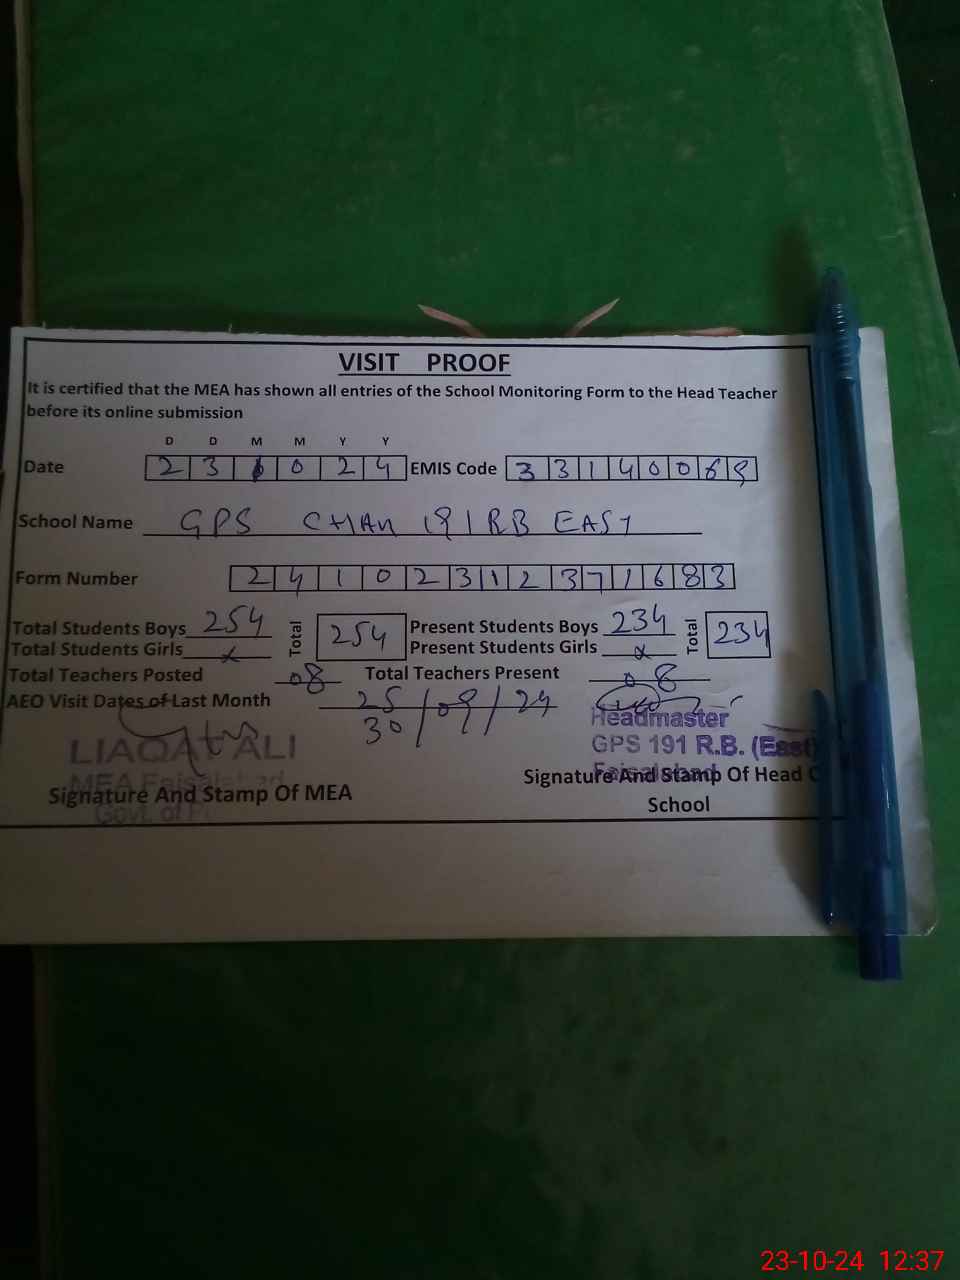 VISIT PROOF
It is certified that the MEA has shown all entries of the School Monitoring Form to the Head Teacher
before its online submission
D D M M Y Y
Date 2 3 1 0 2 4 EMIS Code 3 3 1 4 0 0 6 9
School Name GPS CHAK 191 RB EAST
Form Number 2 4 1 0 2 3 1 2 3 7 1 6 8 3
Total Students Boys 254 Total 254 Present Students Boys 234 Total 234
Total Students Girls x Present Students Girls x
Total Teachers Posted 08 Total Teachers Present 08
AEO Visit Dates of Last Month 25/09/24
30
Headmaster
LIAQAT ALI GPS 191 R.B. (East)
MEA Faisalabad Faisalabad
Signature And Stamp Of MEA Signature And Stamp Of Head
Govt. of School
23-10-24 12:37